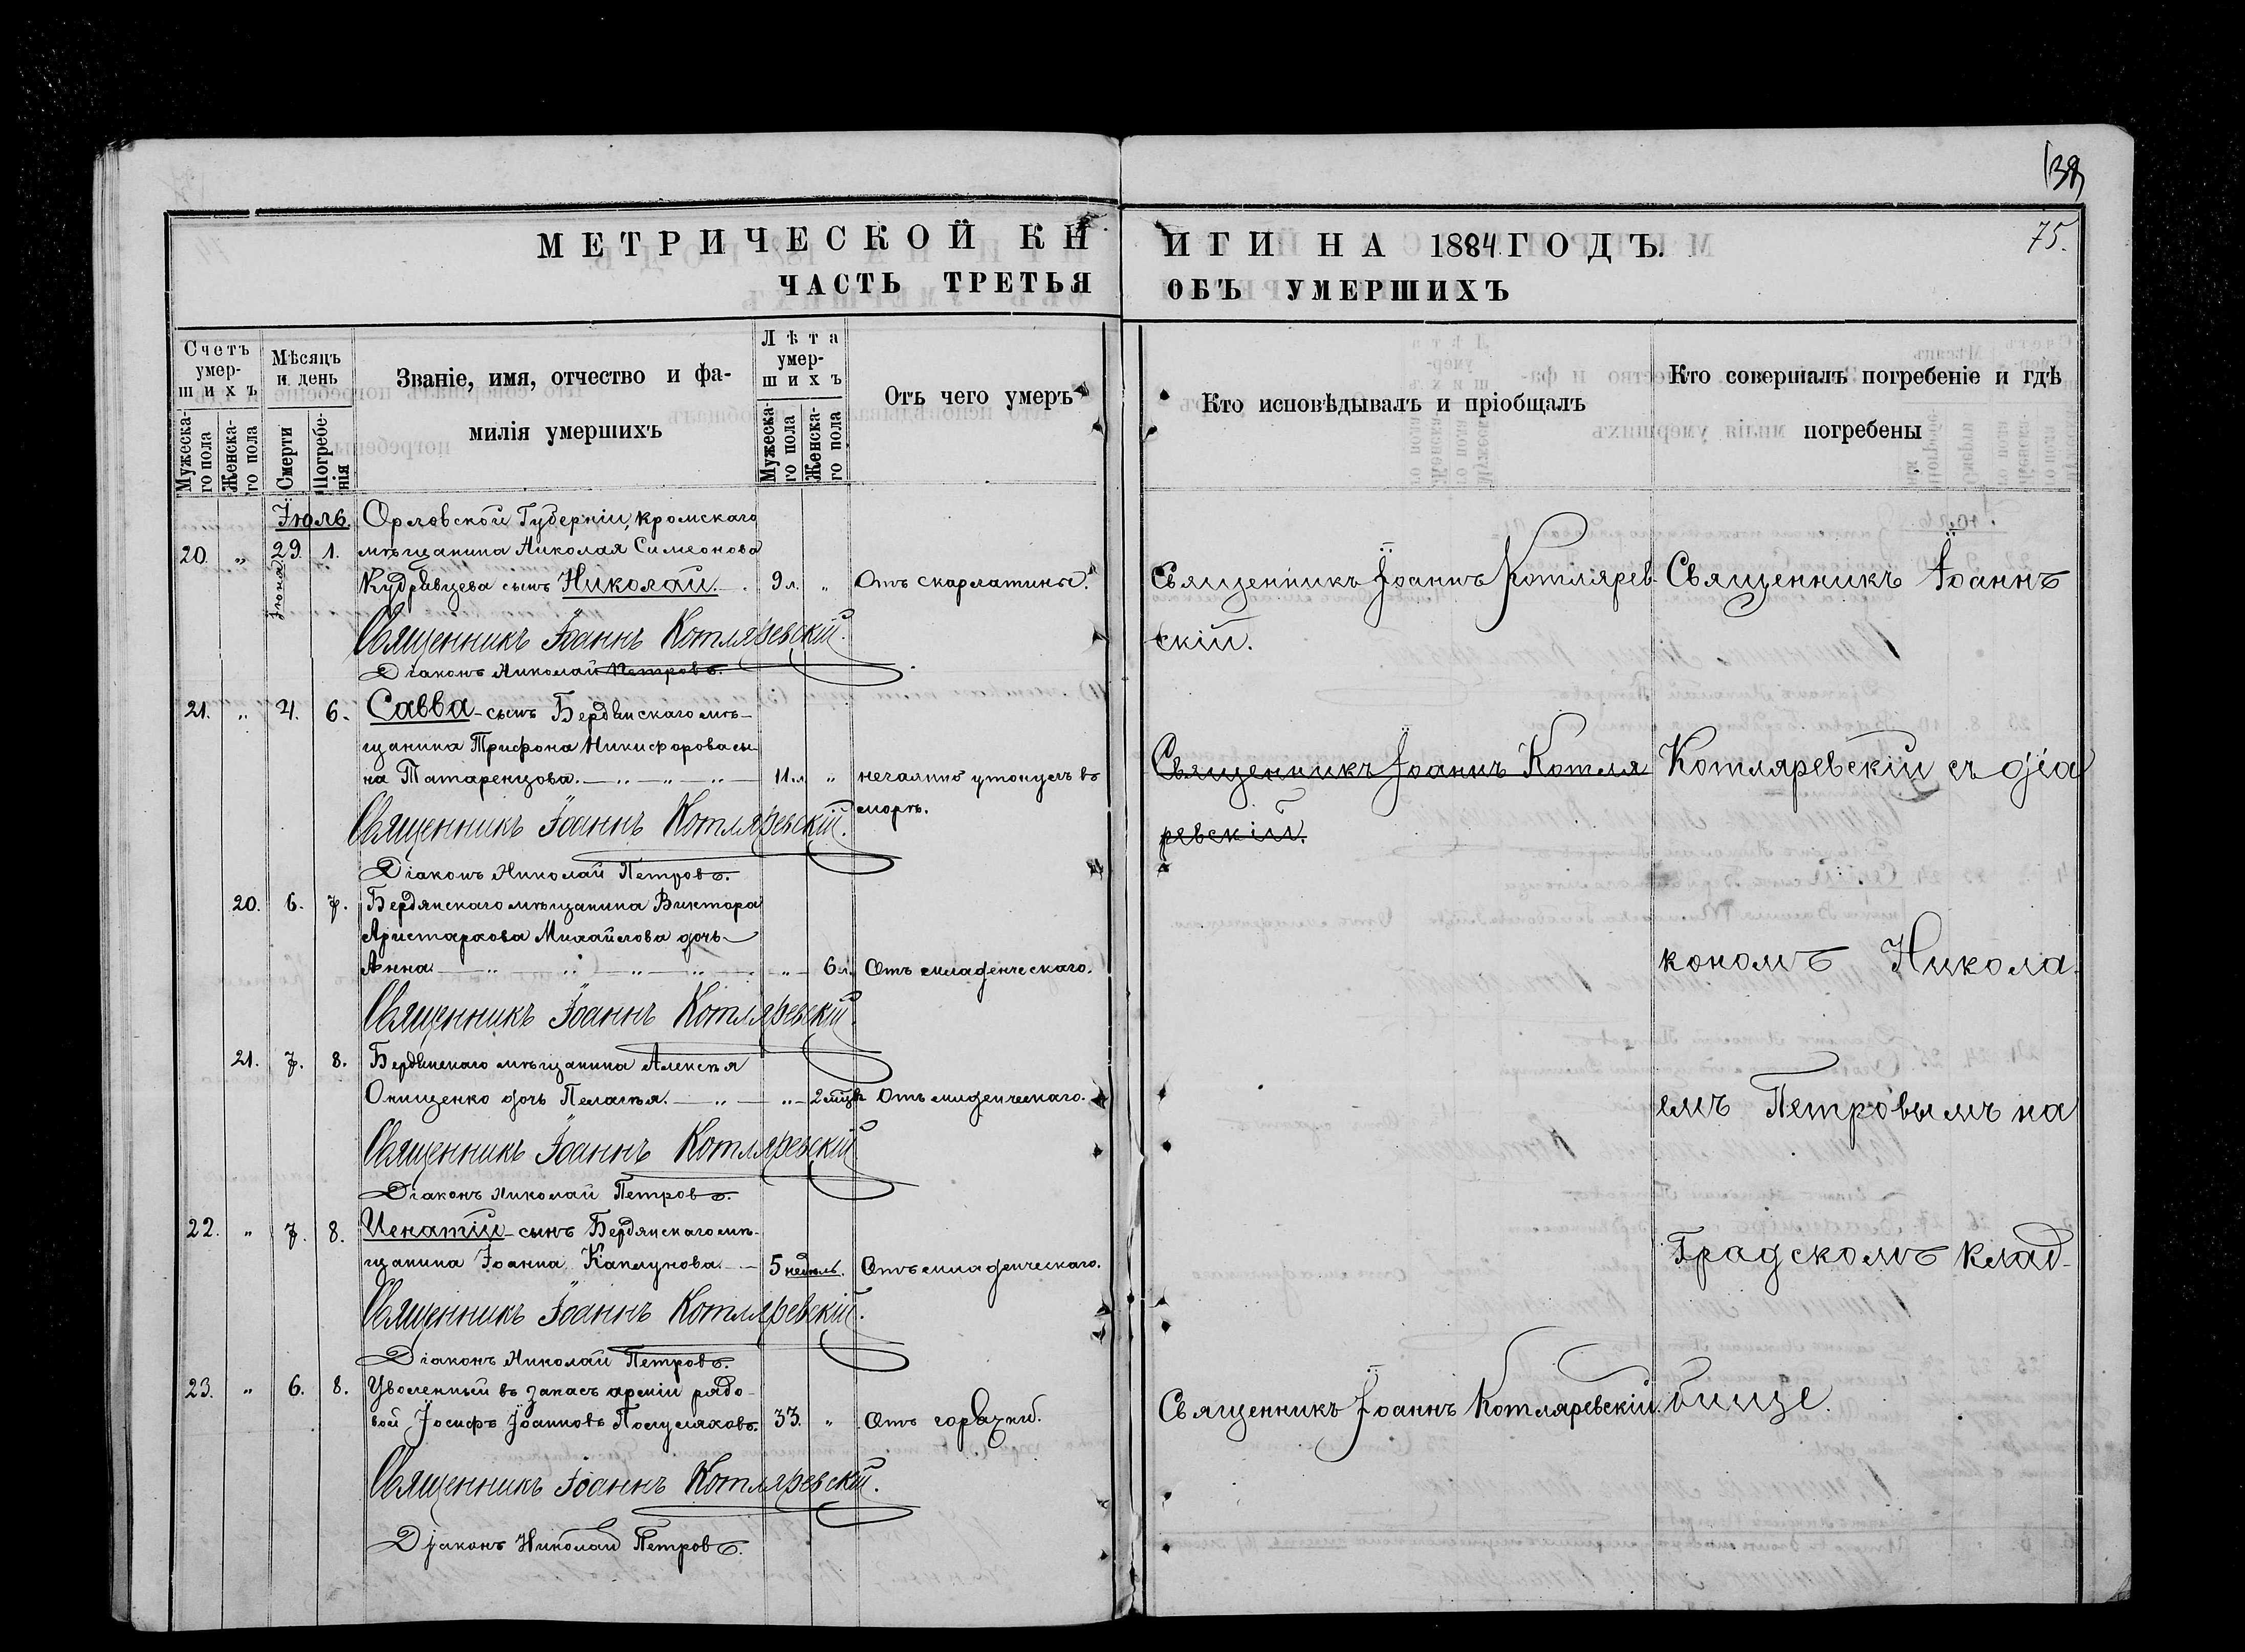 139
75.
МЕТРИЧЕСКОЙ КНИГИ НА 1884 ГОДЪ.
ЧАСТЬ ТРЕТЬЯ ОБЪ УМЕРШИХЪ
Счетъ умер-шихъ
Мужеска-го пола
Женска-го пола
Мѣсяцъ и день
Смерти
Погребе-нія
Званіе, имя, отчество и фа-
милія умершихъ
Лѣта умер-шихъ
Мужеска-го пола
Женска-го пола
Отъ чего умеръ
Кто исповѣдывалъ и пріобщалъ
Кто совершалъ погребеніе и гдѣ
погребены
Іюль. Орловской Губерніи, Кромскаго
20. „ 29. Іюня 1. мѣщанина Николая Симеонова
Кудрявцева сынъ Николай. 9 л. „ Отъ скарлатины.
Священникъ Іоаннъ Котляревскій.
Діаконъ Николай Петровъ.
21. „ 4. 6. Савва - сынъ Бердянскаго мѣ-
щанина Трифона Никифорова сы-
на Татаренцова. 11 л. „ нечаянно утонулъ въ
морѣ.
Священникъ Іоаннъ Котляревскій.
Діаконъ Николай Петровъ.
20. 6. 7. Бердянскаго мѣщанина Виктора
Аристархова Михайлова дочь
Анна „ 6 л. Отъ младенческаго.
Священникъ Іоаннъ Котляревскій
21. 7. 8. Бердянскаго мѣщанина Алексѣя
Онищенко дочь Пелагѣя. „ 2 мѣц. Отъ младенческаго.
Священникъ Іоаннъ Котляревскій
Діаконъ Николай Петровъ.
22. „ 7. 8. Игнатій - сынъ Бердянскаго мѣ-
щанина Іоанна Каплунова. 5 недѣль. Отъ младенческаго.
Священникъ Іоаннъ Котляревскій.
Діаконъ Николай Петровъ.
23. „ 6. 8. Уволенный въ запасъ арміи рядо-
вой Іосифъ Іоанновъ 33. „ Отъ горячки.
Священникъ Іоаннъ Котляревскій.
Діаконъ Николай Петровъ.
Священникъ Іоаннъ Котлярев-
скій.
Священникъ Іоаннъ Котля
ревскій.
Священникъ Іоаннъ Котляревскій.
Священникъ Іоаннъ
Котляревскій съ діа
кономъ Никола-
емъ Петровымъ на
Градскомъ клад-
бище.